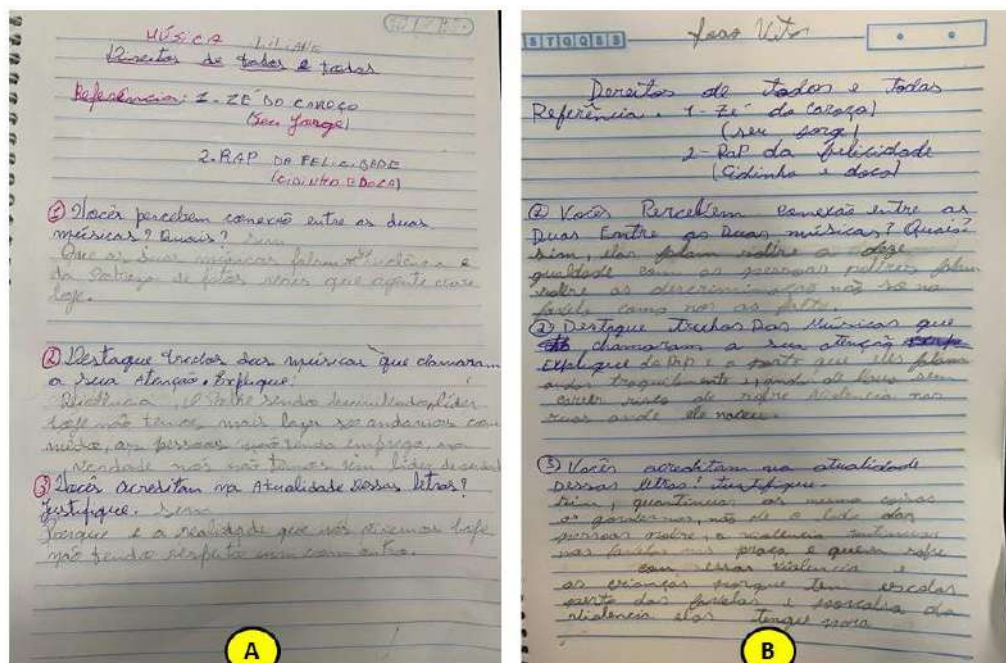 MÚSICA LILIANE
Direitos de todos e todas
Referência: 1. ZÉ DO CAROÇO
(Seu Jorge)
2. RAP DA FELICIDADE
(CIDINHO E DOCA)
① Vocês percebem conexão entre as duas
músicas? Quais? Sim
Que as duas músicas falam violência e
da pobreza de fatos reais que agente vive
hoje.
② Destaque trechos das músicas que chamaram
a sua Atenção. Explique:
Violência, o Pobre sendo humilhado, líder
hoje não temos mais lazer so andamos com
medo, as pessoas não tendo emprego, na
verdade nós não temos um líder de
③ Vocês acreditam na Atualidade dessas letras?
Justifique. Sim
Porque é a realidade que nós vivemos hoje
não tendo respeito um com outro.
A
João Vitor
S T Q Q S S
Dereitos de Todos e Todas
Referência. 1- Zé do Caroço
(seu Jorge)
2- Rap da felicidade
(Cidinho e doca)
① Vocês Percebem conexão entre as
Duas Entre as Duas músicas? Quais?
sim, elas falam sobre a deze
gualdade com as pessoas pobres falam
sobre as descriminação não so na
favela como nos as
② Destaque Trechos Das Músicas que
chamaram a sua atenção
Explique do Rap e a parte que eles falam
andar tranquilamente, andar de sem
correr risco de sofre violencia nas
ruas onde ele nasceu.
③ Vocês acreditam na atualidade
Dessas letras? Justifique.
sim, quantinua as mesma coisas
os não de o lado das
pessoas pobre, a violencia continua
nas favelas nas praça e quem sofre
com essas violencia e
as crianças porque tem escolas
perto das favelas e por causa da
violencia elas tenque para
B